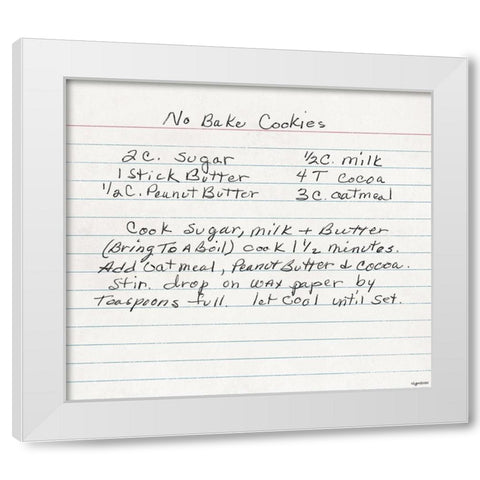 No Bake Cookies
2 C. Sugar 1/2 C. milk
1 Stick Butter 4 T cocoa
1/2 C. Peanut Butter 3 C. oatmeal
Cook Sugar, milk + Butter
(Bring To A Boil) Cook 1 1/2 minutes.
Add oatmeal, Peanut Butter & cocoa.
Stir. drop on wax paper by
Teaspoons full. let cool until set.